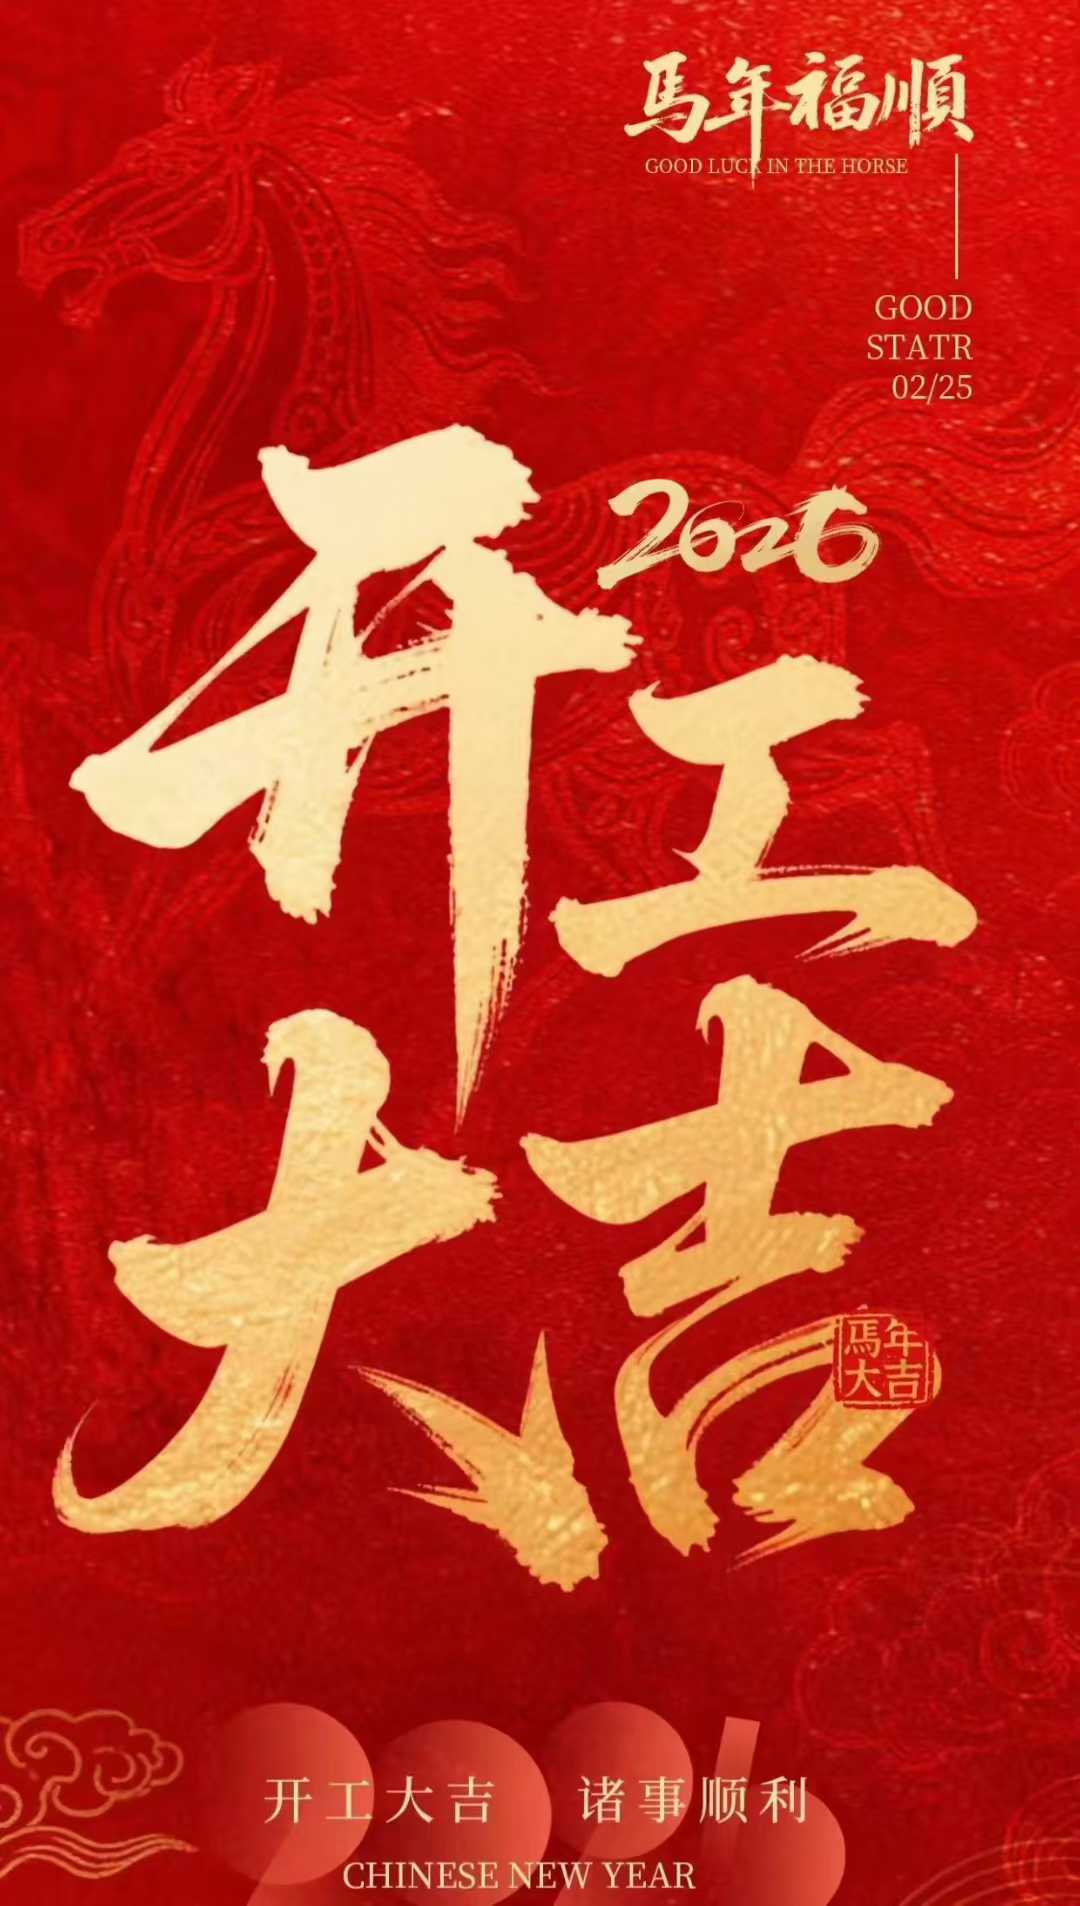 馬年福順
GOOD LUCK IN THE HORSE
GOOD
STATR
02/25
2026
开工
大吉
馬年
大吉
2026
开工大吉 诸事顺利
CHINESE NEW YEAR